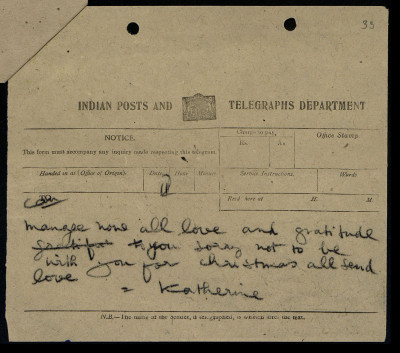 33
INDIAN POSTS AND TELEGRAPHS DEPARTMENT
NOTICE.
This form must accompany any inquiry made respecting this telegram.
Charge to pay.
Rs. As.
Office Stamp
Handed in at (Office of Origin). Date. Hour. Minute. Service Instructions. Words
Recd. here at H. M.
all love and gratitude
to you sorry not to be
with you for christmas all send
love
= Katherine
N.B.—The name of the Sender, if telegraphed, is written after the text.